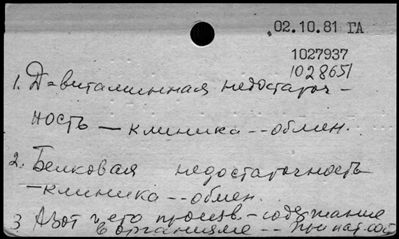 02.10.81 ГА
1027937
1028651
1. Д-витаминная недостаточ-
ность — клиника -- обмен.
2. Белковая недостаточность
— клиника -- обмен.
3 Азот и его произв. - содержание
в организме -- при пат. сост